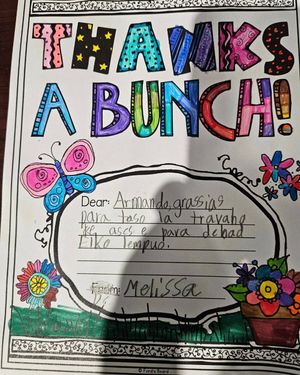 THANKS
A BUNCH!
Dear: Armando, grassias
para taso la travaho
ke ascs e para debad
Eiko lempuo.
From: Melissa